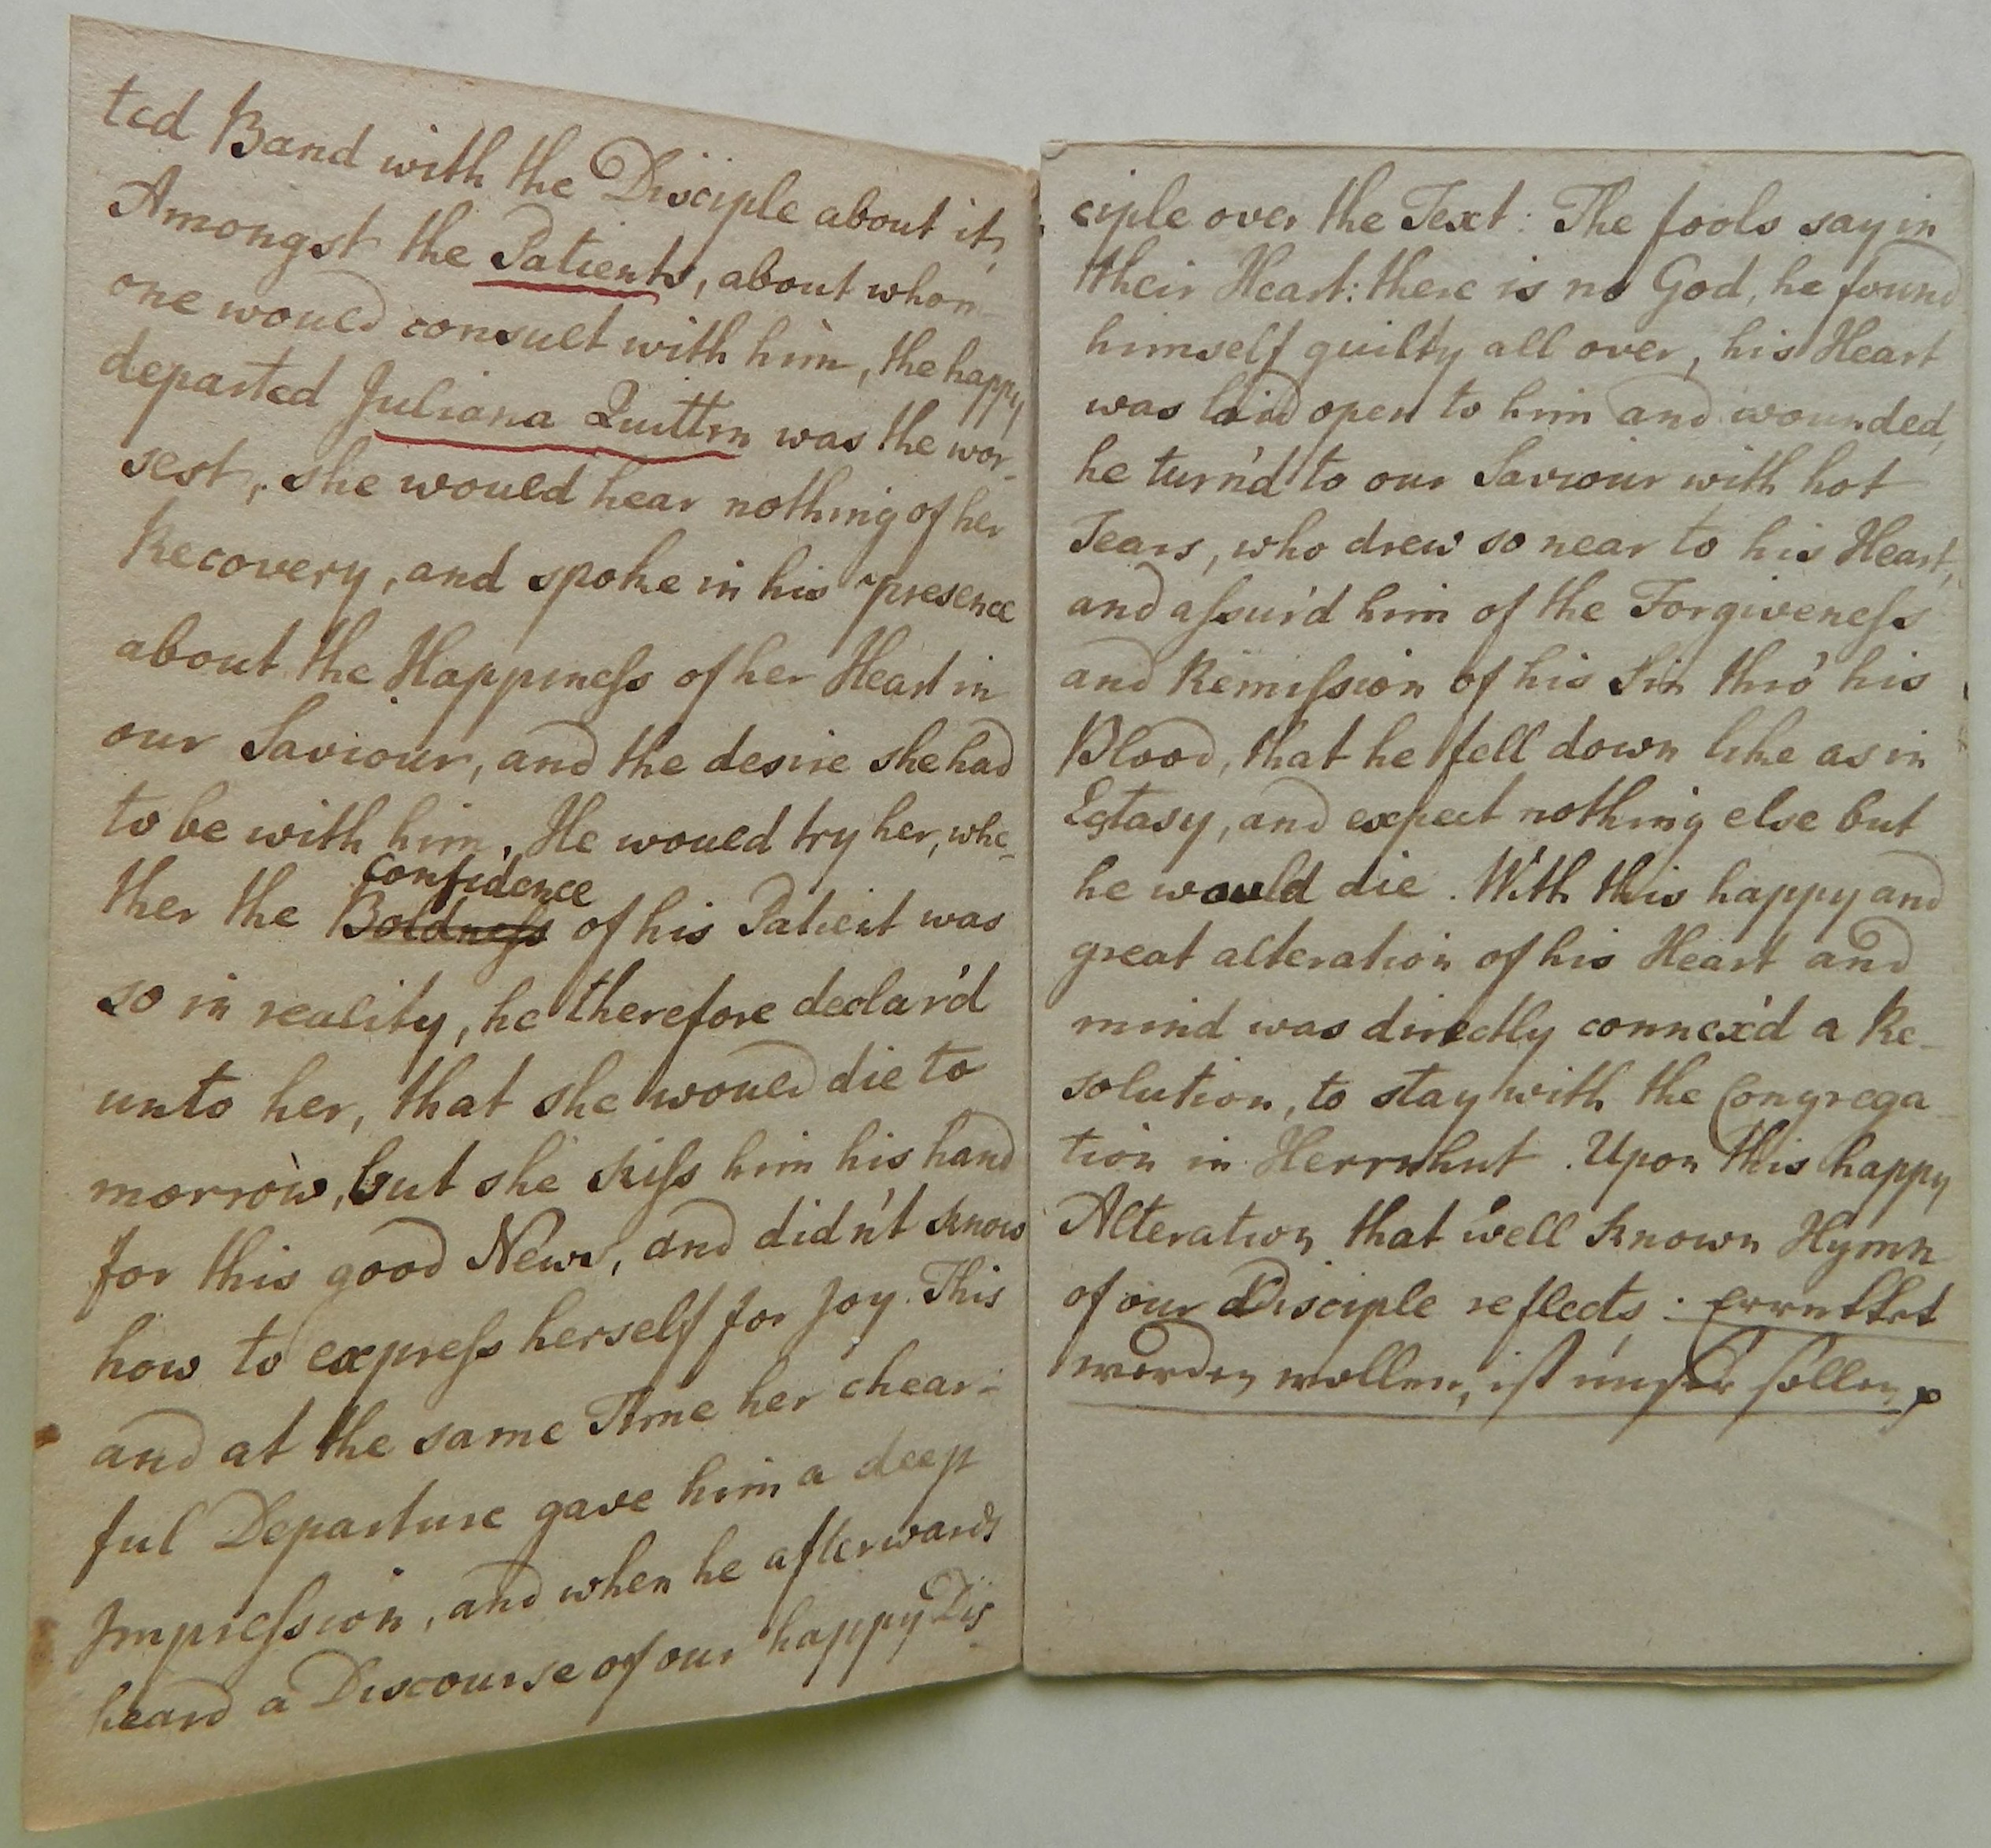 ted Band with the Disciple about it,
Amongst the Patients, about whom
one would consult with him, the happy
departed Juliana Quittin was the wor-
sest, she would hear nothing of her
Recovery, and spoke in his presence
about the Happiness of her Heart in
our Saviour, and the desire she had
to be with him. He would try her, whe-
confidence
ther the Boldness of his Patient was
so in reality, he therefore declar'd
unto her, that she would die to
morrow, but she kiss him his hand
for this good News, and didn't know
how to express herself for Joy. This
and at the same Time her chear-
ful Departure gave him a deep
Impression, and when he afterwards
heard a Discourse of our happy Dis-
ciple over the Text: The fools say in
their Heart: there is no God, he found
himself guilty all over, his Heart
was laid open to him and wounded,
he turn'd to our Saviour with hot
Tears, who drew so near to his Heart,
and assur'd him of the Forgiveness
and Remission of his Sin thro' his
Blood, that he fell down like as in
Extasy, and expect nothing else but
he would die. With this happy and
great alteration of his Heart and
mind was directly connex'd a Re-
solution, to stay with the Congrega-
tion in Herrnhut. Upon this happy
Alteration that well known Hymn
of our Disciple reflects: Errettet
werden wollen, ist unser sollen